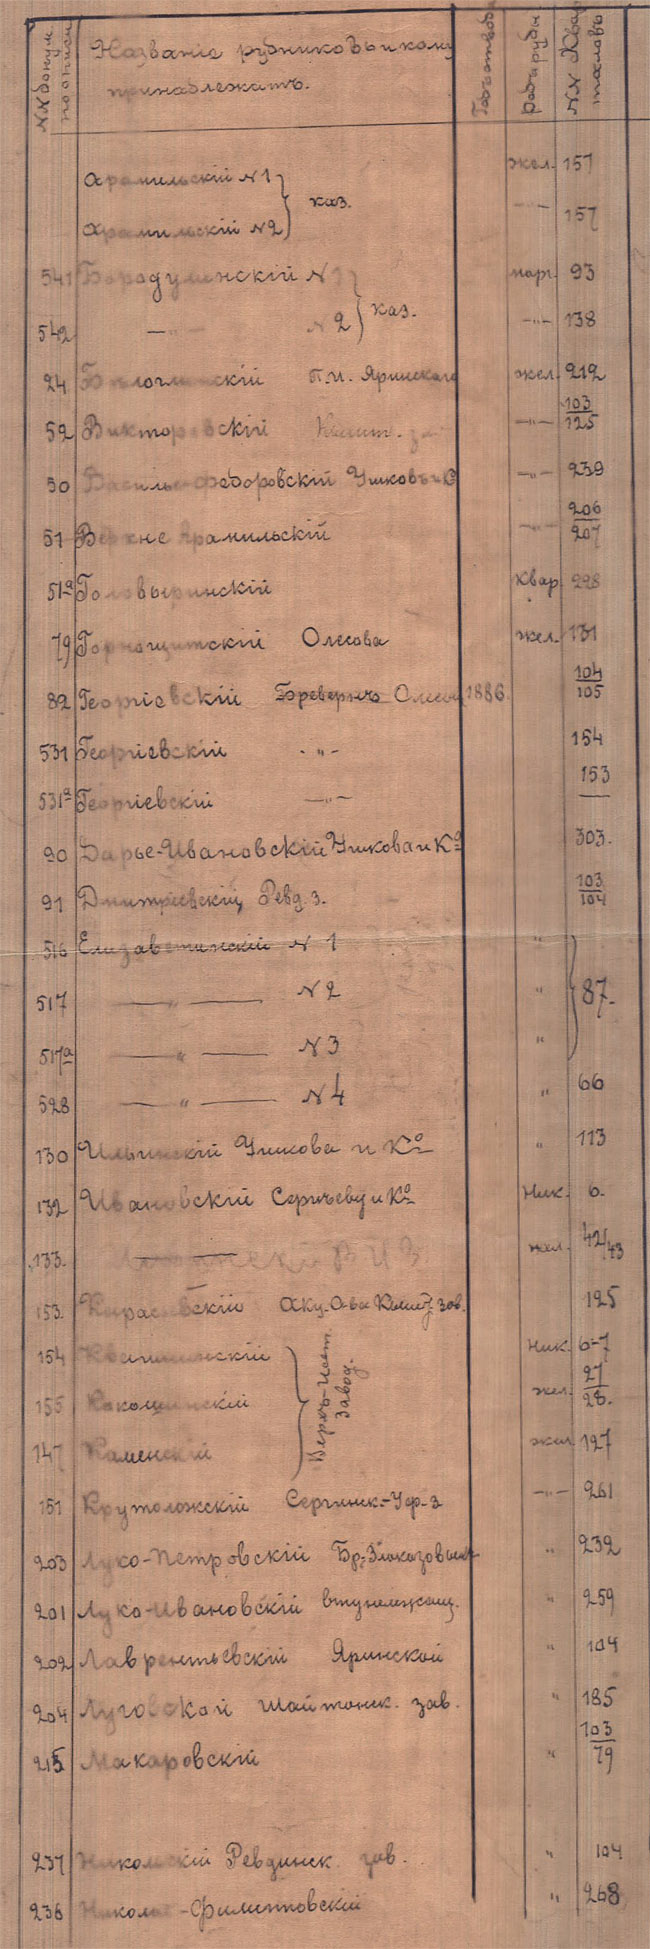 NN докум. по описи Названіе рудниковъ и кому принадлежатъ. Годъ отвода Родъ руды NN Квад. тасловъ
Арамильскій N 1 } каз. жел. 157
Арамильскій N 2 —"— 157
541 Бородулинскій N 1 } каз. марг. 93
542 —"— N 2 —"— 138
24 П.И. Яринскаго жел. 212
52 Викторовскій —"— 103/125
50 Васильо-Федоровскій Ушковъ и К —"— 239
51 Верхне Арамильскій —"— 206/207
51а Головыринскій Квар. 298
79 Горнощитскій Олесова жел. 131
82 Георгіевскій Бревернъ Олесов 1886. 104/105
531 Георгіевскій -"- 154
531а Георгіевскій —"— 153
90 Дарье-Ивановскій Ушкова и Ко 303.
91 Дмитріевскій Ревд. з. 103/104
516 Елизаветинскій N 1 " } 87.
517 —"— N 2 "
517а —"— N 3 "
528 —"— N 4 " 66
130 Ильинскій Ушкова и Ко " 113
132 Ивановскій и Ко Ник. 6.
133. жел. 42/43
153. Карасьевскій Акц. О-ва зав. 195
154 } Верхъ-Исет. Завод. Ник. 6-7
155 Кокошинскій жел. 27/28.
147 Каменскій жел 127
151 Крутоложскій Сергинск.-Уф. з —"— 261
203 Луко-Петровскій Бр. Злоказовыхъ " 232
201 Луко-Ивановскій " 259
202 Лаврентьевскій Яринской " 104
204 Луговской Шайтанск. зав. " 185
215 Макаровскій " 103/79
237 Ревдинск. зав. " 104
238 Николае-Филипповскій " 268